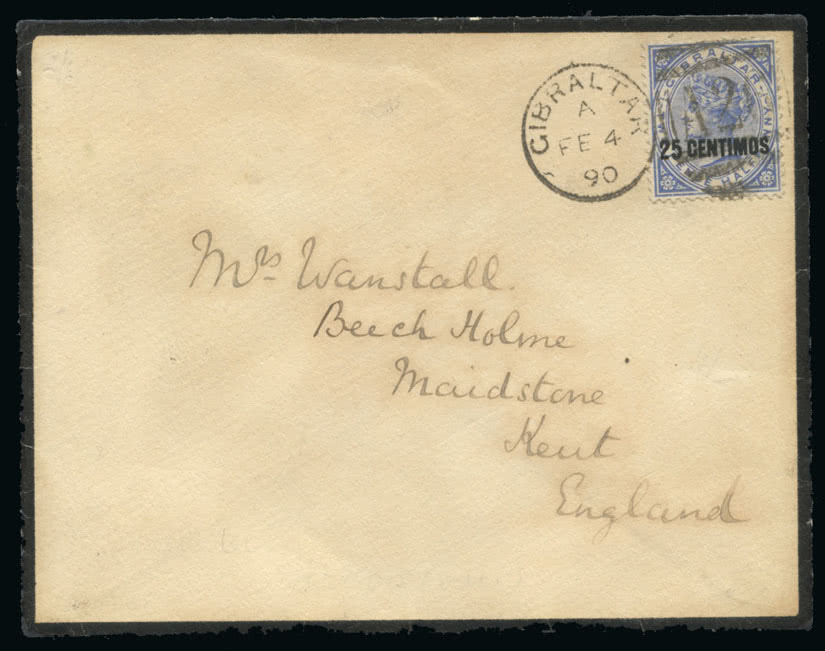 GIBRALTAR
A
FE 4
90
GIBRALTAR
25 CENTIMOS
HALF
Mrs Wanstall.
Beech Holme
Maidstone
Kent
England